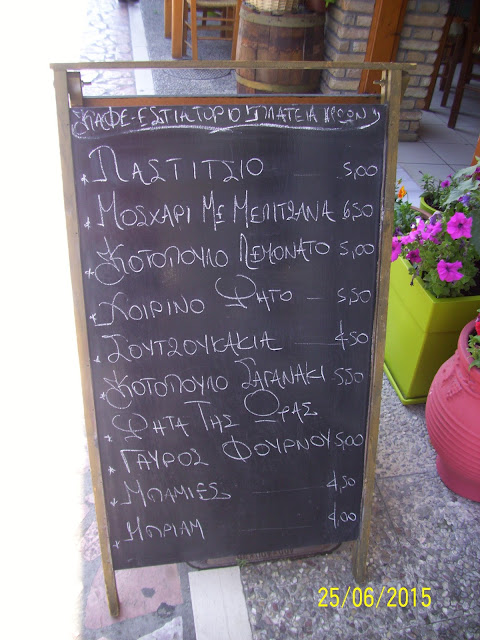 ΚΑΦΕ-ΕΣΤΙΑΤΟΡΙΟ ΠΛΑΤΕΙΑ
* ΠΑΣΤΙΤΣΙΟ 5,00
* ΜΟΣΧΑΡΙ ΜΕ ΜΕΛΙΤΖΑΝΑ 6,50
* ΚΟΤΟΠΟΥΛΟ ΛΕΜΟΝΑΤΟ 5,00
* ΧΟΙΡΙΝΟ ΨΗΤΟ 5,50
* ΣΟΥΤΖΟΥΚΑΚΙΑ 4,50
* ΚΟΤΟΠΟΥΛΟ ΣΑΓΑΝΑΚΙ 5,50
* ΨΗΤΑ ΤΗΣ ΩΡΑΣ
* ΓΑΥΡΟΣ ΦΟΥΡΝΟΥ 5,00
* ΜΠΑΜΙΕΣ 4,50
* ΜΠΡΙΑΜ 4,00
25/06/2015